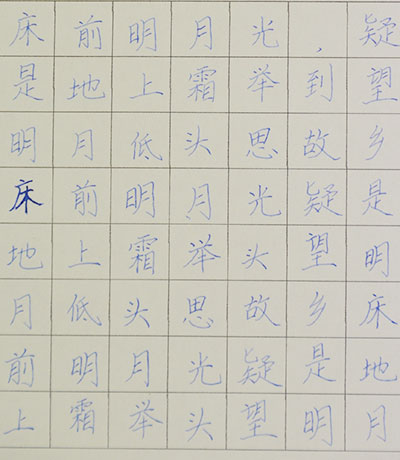 床前明月光,疑
是地上霜举到望
明月低头思故乡
床前明月光疑是
地上霜举头望明
月低头思故乡床
前明月光疑是地
上霜举头望明月